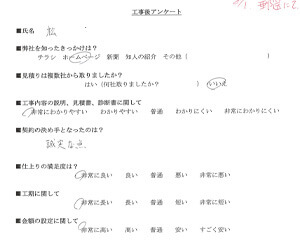 工事後アンケート
■氏名 松
■弊社を知ったきっかけは？
チラシ ホームページ 新聞 知人の紹介 その他（ ）
■見積りは複数社から取りましたか？
はい（何社取りましたか？ ） いいえ
■工事内容の説明、見積書、診断書に関して
非常にわかりやすい わかりやすい 普通 わかりにくい 非常にわかりにくい
■契約の決め手となったのは？
誠実な点
■仕上りの満足度は？
非常に良い 良い 普通 悪い 非常に悪い
■工期に関して
非常に長い 長い 普通 短い 非常に短い
■金額の設定に関して
非常に高い 高い 普通 安い すごく安い